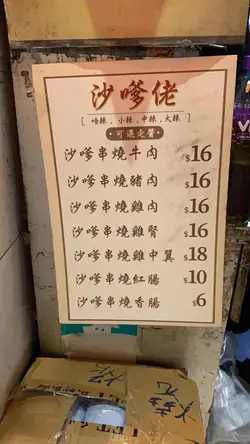 沙嗲佬
[ 唔辣、小辣、中辣、大辣 ]
·可選走醬·
沙嗲串燒牛肉 $16
沙嗲串燒豬肉 $16
沙嗲串燒雞肉 $16
沙嗲串燒雞腎 $16
沙嗲串燒雞中翼 $18
沙嗲串燒紅腸 $10
沙嗲串燒香腸 $6